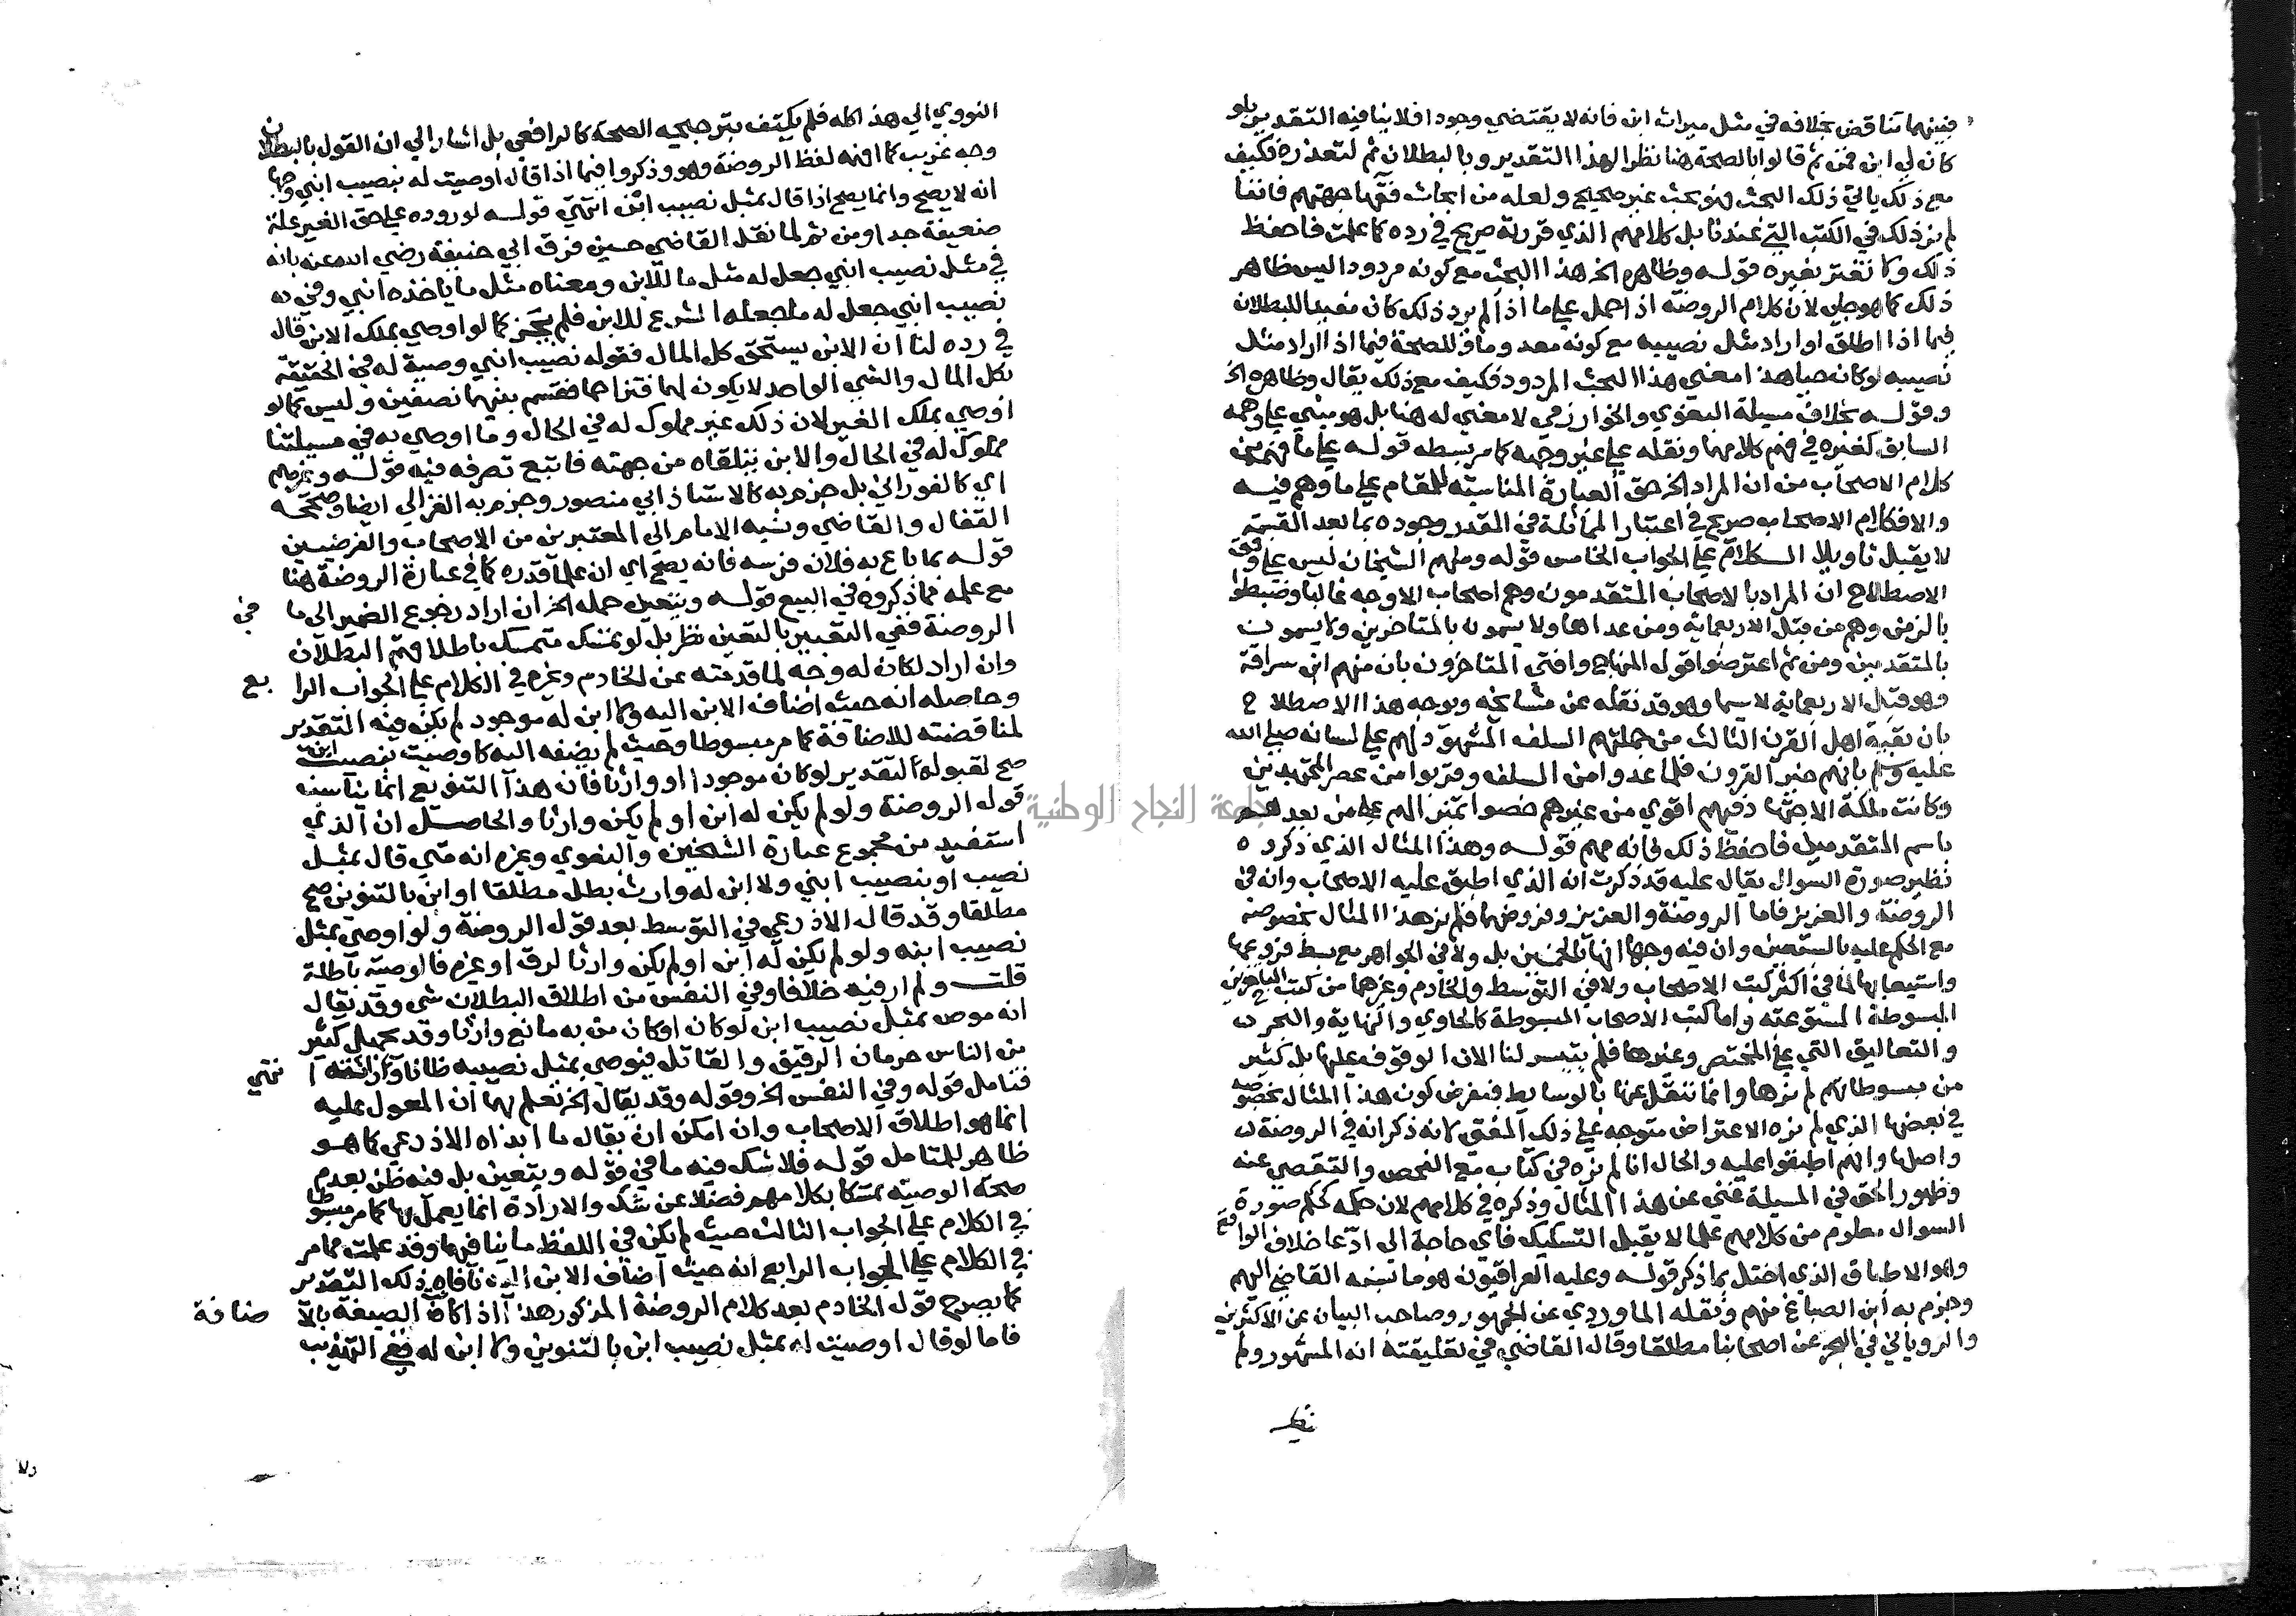 فبينهما تناقض بخلافه في مثل ميراث ابن فانه لا يقتضي وجودا فلا ينافيه التقدير بلو
كان لي ابن فمن ثم قالوا بالصحة هنا نظرا لهذا التقدير وبالبطلان ثم لتعذره فكيف
مع ذلك ياتي ذلك البحث فهو بحث غير صحيح ولعله من ابحاث فقها جهتهم فاننا
لم نر ذلك في الكتب التي عندنا بل كلامهم الذي قررته صريح في رده كما علمت فاحفظ
ذلك ولا تغتر بغيره قوله وظاهره الخ هذا البحث مع كونه مردودا ليس ظاهر
ذلك كما هو جلي لان كلام الروضة اذا حمل على ما اذا لم يرد ذلك كان مفيدا للبطلان
فيما اذا اطلق او اراد مثل نصيبه مع كونه معدوما وللصحة فيما اذا اراد مثل
نصيبه لو كان حيا هذا معنى هذا البحث المردود فكيف مع ذلك يقال وظاهره الخ
وقوله بخلاف مسيلة البغوي والخوارزمي لا معنى له هنا بل هو مبني على وهمه
السابق كغيره في فهم كلامهما ونقله على غير وجهه كما مر بسطه قوله على ما فهم من
كلام الاصحاب من ان المراد الخ حق العبارة المناسبة للمقام على ما وهم فيه
والا فكلام الاصحاب صريح في اعتبار المماثلة في المقدر وجوده بما بعد القسمة
لا يقبل تاويلا الكلام على الجواب الخامس قوله ومنهم الشيخان ليس على وفق
الاصطلاح ان المراد بالاصحاب المتقدمون وهم اصحاب الاوجه غالبا وضبطوا
بالزمن وهم من قبل الاربعماية ومن عداها ولا يسمون بالمتاخرين ولا يسمون
بالمتقدمين ومن ثم اعترضوا قول المنهاج وافتى المتاخرون بان منهم ابن سراقة
وهو قبل الاربعماية لا سيما وهو قد نقله عن مشايخه ويوجه هذا الاصطلاح
بان بقية اهل القرن الثالث من جملتهم السلف المشهود لهم على لسانه صلى الله
عليه وسلم بانهم خير القرون فلما عدوا من السلف وقربوا من عصر المجتهدين
وكانت ملكة الاجتهاد فيهم اقوى من غيرهم خصوا تمييزا لهم على من بعدهم
باسم المتقدمين فاحفظ ذلك فانه مهم قوله وهذا المثال الذي ذكروه
نظير صورة السوال يقال عليه قد ذكرت انه الذي اطبق عليه الاصحاب وانه في
الروضة والعزيز فاما الروضة والعزيز وفروضهما فلم نر هذا المثال بخصوصه
مع الحكم عليه بالستعين وان فيه وجها انها بالخمسين بل ولا في الجواهر مع بسط فروعها
واستيعابها لما في اكثر كتب الاصحاب ولا في التوسط والخادم وغيرهما من كتب المتاخرين
المبسوطة المستوعبة واما كتب الاصحاب المبسوطة كالحاوي والنهاية والبحر
والتعاليق التي على المختصر وغيرها فلم يتيسر لنا الان الوقوف عليها بل كثير
من مبسوطاتهم لم نرها وانما ننقل عنها بالوسايط فبفرض كون هذا المثال بخصوصه
في بعضها الذي لم نره الاعتراض متوجه على ذلك المفتي لانه ذكر انه في الروضة
واصلها وانهم اطبقوا عليه والحال انا لم نره في كتاب مع الفحص والتقصي عنه
وظهور الحق في المسيلة غني عن هذا المثال وذكره في كلامهم لان حكمه كحكم صورة
السوال معلوم من كلامهم علما لا يقبل التشكيك فاي حاجة الى ادعا خلاف الواقع
وهو الاطباق الذي اختل بما ذكر قوله وعليه العراقيون هو ما نسبه القاضي اليهم
وجزم به ابن الصباغ منهم ونقله الماوردي عن الجمهور وصاحب البيان عن الاكثرين
والروياني في البحر عن اصحابنا مطلقا وقال القاضي في تعليقته انه المشهور ولم
النووي الى هذا كله فلم يكتف بترجيحه الصحة كالرافعي بل اشار الى ان القول بالبطلان
وجه غريب كما افهمه لفظ الروضة وهو وذكروا فيما اذا قال اوصيت له بنصيب ابني وجها
انه لا يصح وانما يصح اذا قال بمثل نصيب ابني انتهى قوله لوروده على حق الغير علة
ضعيفة جدا ومن ثم لما نقل القاضي حسين فرق ابي حنيفة رضي الله عنه بانه
في مثل نصيب ابني جعل له مثل ما للابن ومعناه مثل ما ياخذه ابني وفي
نصيب ابني جعل له ما جعله الشرع للابن فلم يجز كما لو اوصي بملك الابن قال
في رده لنا ان الابن يستحق كل المال فقوله نصيب ابني وصية له في الحقيقة
بكل المال والشي الواحد لا يكون لهما فتزاحما فقسم بينهما نصفين وليس كما لو
اوصي بملك الغير لان ذلك غير مملوك له في الحال وما اوصي به في مسيلتنا
مملوك له في الحال والابن يتلقاه من جهته فاتبع تصرفه فيه قوله وغيرهم
اي كالفوراني بل جزم به كالاستاذ ابي منصور وجزم به الغزالي ايضا وصححه
القفال والقاضي ونسبه الامام الى المعتبرين من الاصحاب والفرضيين
قوله بما باع به فلان فرسه فانه يصح اي ان علما قدره كما في عبارة الروضة هنا
مع علمه مما ذكروه في البيع قوله ويتعين حمله الخ ان اراد رجوع الضمير الى ما في
الروضة ففي التعبير بالتعين نظر بل لو تمسك متمسك باطلاقهم البطلان
وان اراد لكان له وجه لما قدمته عن الخادم وغيره في الكلام على الجواب الرابع
وحاصله انه حيث اضاف الابن اليه ولا ابن له موجود لم يكن فيه التقدير
لمناقضته للاضافة كما مر مبسوطا وحيث لم يضفه اليه كاوصيت بنصيب ابن
صح لقبوله التقدير لو كان موجودا او وارثا فان هذا التنويع انما يناسبه
قوله الروضة ولو لم يكن له ابن او لم يكن وارثا والحاصل ان الذي
استفيد من مجموع عبارة الشيخين والبغوي وغيره انه متى قال بمثل
نصيب او بنصيب ابني ولا ابن له وارث بطل مطلقا او ابن بالتنوين صح
مطلقا وقد قال الاذرعي في التوسط بعد قول الروضة ولو اوصى بمثل
نصيب ابنه ولو لم يكن له ابن او لم يكن وارثا لرق او غيره فالوصية باطلة
قلت ولم ار فيه خلافا وفي النفس من اطلاق البطلان شي وقد يقال
انه موص بمثل نصيب ابن لو كان او كان من به مانع وارثا وقد يجهل كثير
من الناس حرمان الرقيق والقاتل فيوصي بمثل نصيبه ظانا وارثه انتهى
فتامل قوله وفي النفس الخ وقوله وقد يقال الخ تعلم بهما ان المعول عليه
انما هو اطلاق الاصحاب وان امكن ان يقال ما ابداه الاذرعي كما هو
ظاهر للمتامل قوله فلا شك فيه ما في قوله ويتعين بل فيه ظن بعدم
صحة الوصية تمسكا بكلامهم فضلا عن شك والارادة انما يعمل بها كما مر مبسوطا
في الكلام على الجواب الثالث حيث لم يكن في اللفظ ما ينافيها وقد علمت مما مر
في الكلام على الجواب الرابع انه حيث اضاف الابن اليه نافاه ذلك التقدير
كما يصرح قول الخادم بعد كلام الروضة المذكور هذا اذا كان الصيغة بالاضافة
فاما لو قال اوصيت له بمثل نصيب ابن بالتنوين ولا ابن له ففي التهذيب
جامعة النجاح الوطنية